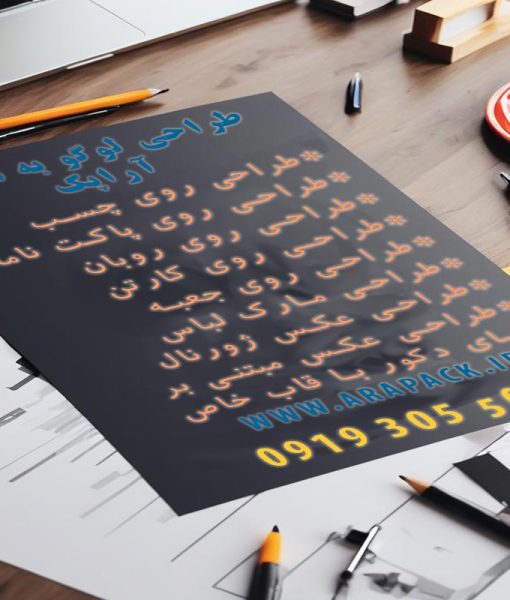 طراحی لوگو به
آراپک
*طراحی روی چسب
*طراحی روی پاکت
*طراحی روی روبان
*طراحی روی کارتن
*طراحی روی جعبه
*طراحی مارک لباس
*طراحی عکس ژورنال
*طراحی عکس مبتنی بر
دکور با قاب خاص
WWW.ARAPACK.I
0919 305 5